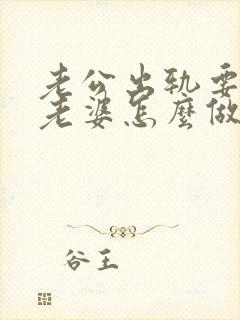 老公出轨要
老婆怎麼做
谷王